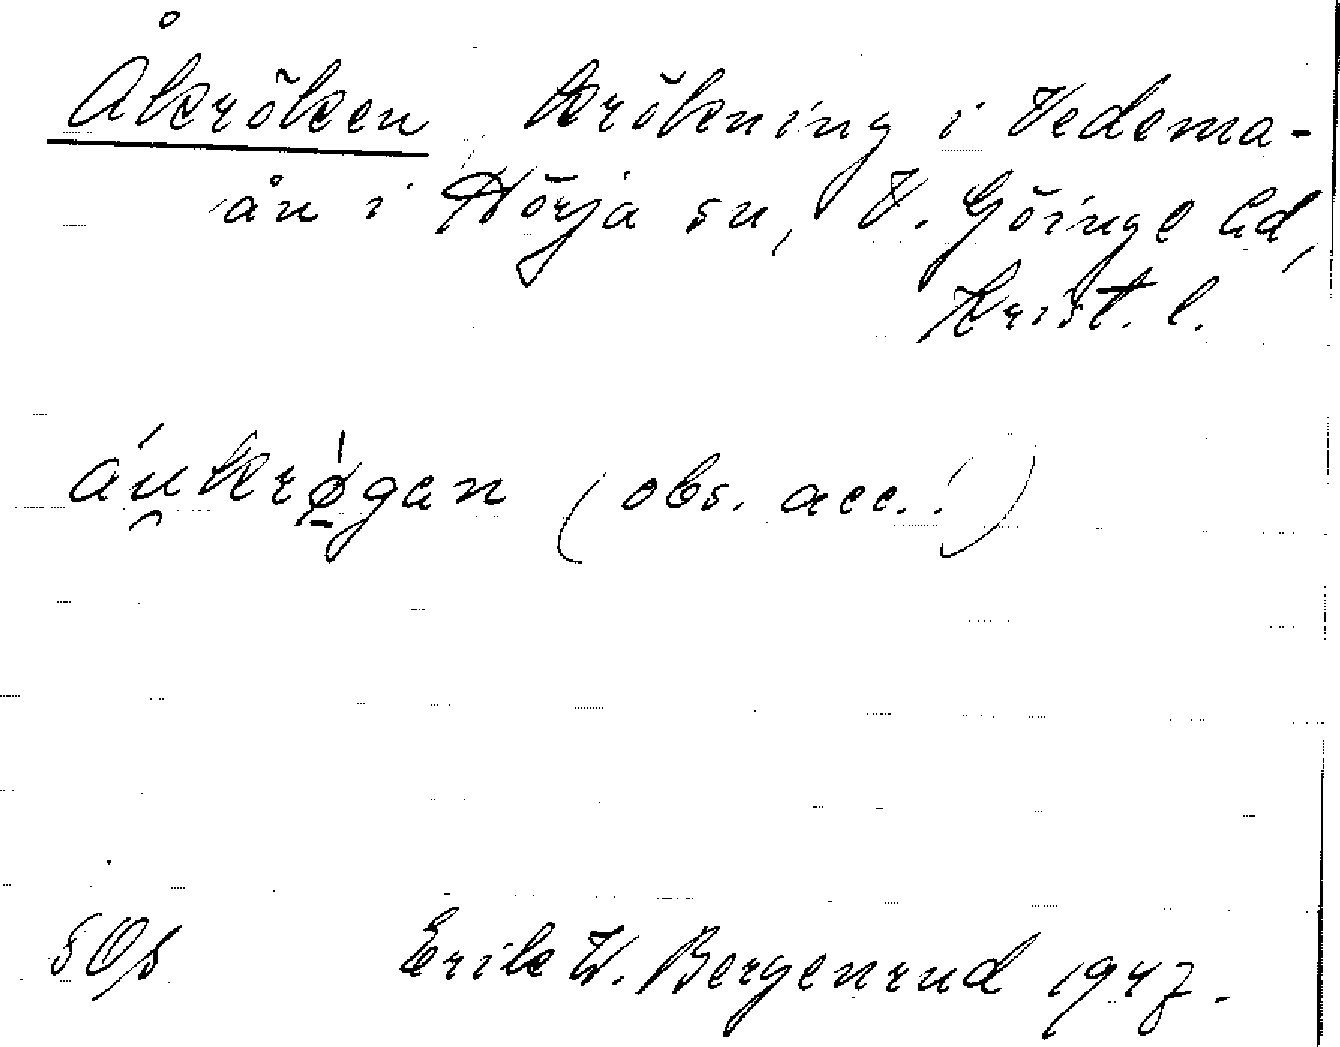 Åkröken, krökning i Vedema-
ån i Hörja sn, V. Göinge hd,
Krist. l.
áu̯krø̀gan (obs. acc.!)
Erik W. Bergenrud 1947.